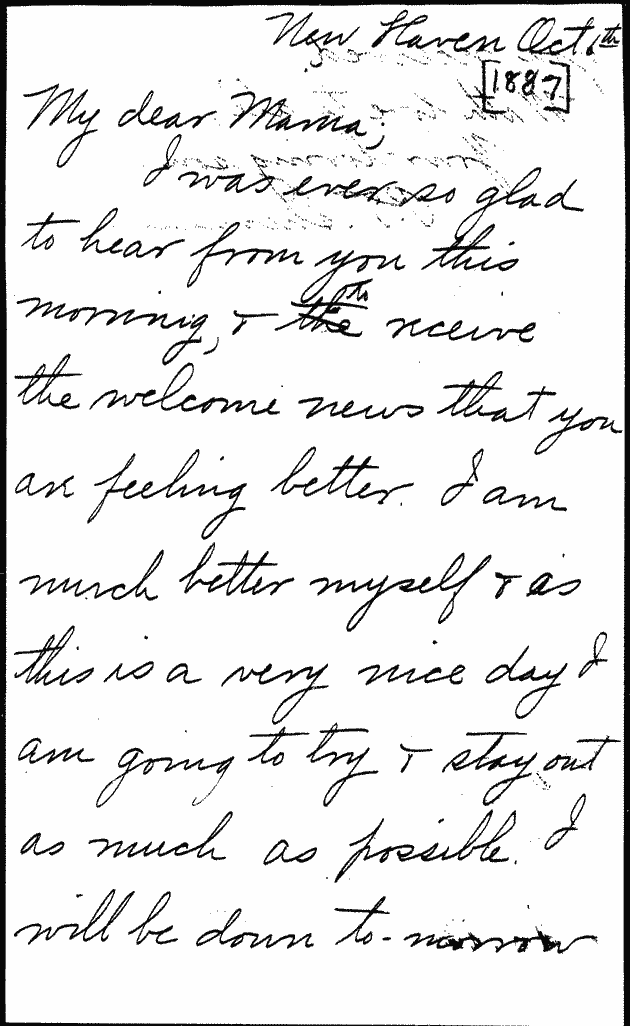 New Haven Oct 6th
[1887]
My dear Mama,
I was ever so glad
to hear from you this
morning, & the to rceive
the welcome news that you
are feeling better. I am
much better myself & as
this is a very nice day I
am going to try & stay out
as much as possible. I
will be down to-morrow